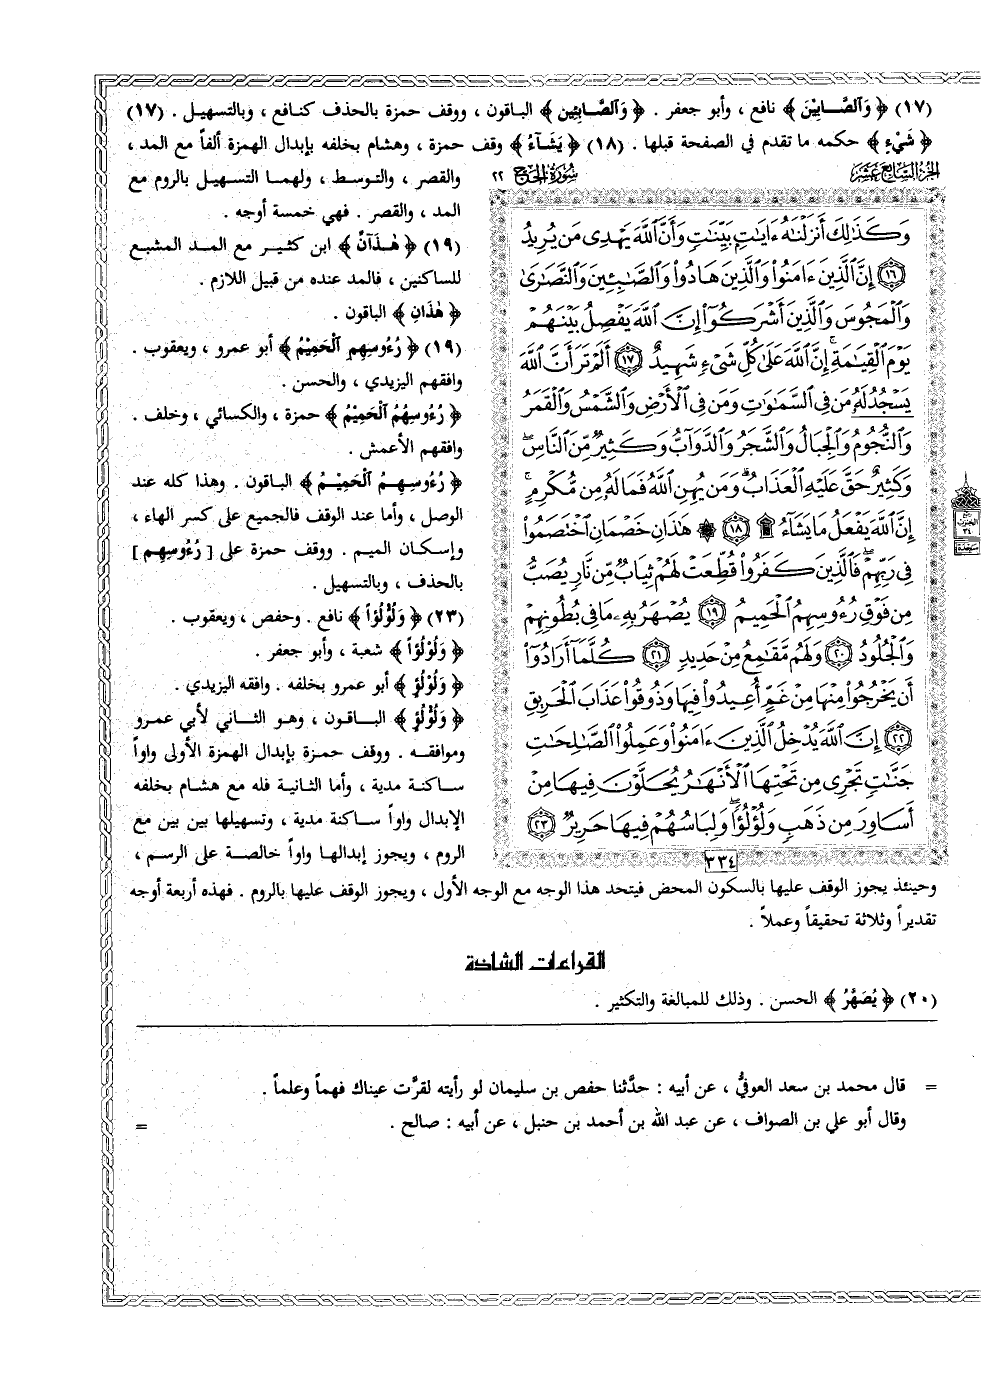 (١٧) ﴿ وَٱلصَّابِيْنَ ﴾ نافع ، وأبو جعفر . ﴿ وَٱلصَّابِئِين ﴾ الباقون ، ووقف حمزة بالحذف كنافع ، وبالتسهيل . (١٧)
﴿ شَيْءٍ ﴾ حكمه ما تقدم في الصفحة قبلها . (١٨) ﴿ يَشَآءُ ﴾ وقف حمزة ، وهشام بخلفه بإبدال الهمزة ألفاً مع المد ،
والقصر ، والتوسط ، ولهما التسهيل بالروم مع
المد ، والقصر . فهي خمسة أوجه .
(١٩) ﴿ هَٰذَآنِّ ﴾ ابن كثير مع المد المشبع
للساكنين ، فالمد عنده من قبيل اللازم .
﴿ هَٰذَانِ ﴾ الباقون .
(١٩) ﴿ رُءُوسِهِمِ ٱلْحَمِيْمُ ﴾ أبو عمرو ، ويعقوب .
وافقهم اليزيدي ، والحسن .
﴿ رُءُوسِهُمُ ٱلْحَمِيْمُ ﴾ حمزة ، والكسائي ، وخلف .
وافقهم الأعمش .
﴿ رُءُوسِهِمُ ٱلْحَمِيْمُ ﴾ الباقون . وهذا كله عند
الوصل ، وأما عند الوقف فالجميع على كسر الهاء ،
وإسكان الميم . ووقف حمزة على [ رُءُوسِهِم ]
بالحذف ، وبالتسهيل .
(٢٣) ﴿ وَلُؤْلُؤاً ﴾ نافع . وحفص ، ويعقوب .
﴿ وَلُوْلُؤاً ﴾ شعبة ، وأبو جعفر .
﴿ وَلُوْلُؤٍ ﴾ أبو عمرو بخلفه . وافقه اليزيدي .
﴿ وَلُؤْلُؤٍ ﴾ الباقون ، وهو الثاني لأبي عمرو
وموافقه . ووقف حمزة بإبدال الهمزة الأولى واواً
ساكنة مدية ، وأما الثانية فله مع هشام بخلفه
الإبدال واواً ساكنة مدية ، وتسهيلها بين بين مع
الروم ، ويجوز إبدالها واواً خالصة على الرسم ،
الجزء السابع عشر
سورة الحج ٢٢
وَكَذَٰلِكَ أَنزَلْنَٰهُ ءَايَٰتٍۭ بَيِّنَٰتٍ وَأَنَّ ٱللَّهَ يَهْدِى مَن يُرِيدُ
۝١٦ إِنَّ ٱلَّذِينَ ءَامَنُوا۟ وَٱلَّذِينَ هَادُوا۟ وَٱلصَّٰبِـِٔينَ وَٱلنَّصَٰرَىٰ
وَٱلْمَجُوسَ وَٱلَّذِينَ أَشْرَكُوٓا۟ إِنَّ ٱللَّهَ يَفْصِلُ بَيْنَهُمْ
يَوْمَ ٱلْقِيَٰمَةِ ۚ إِنَّ ٱللَّهَ عَلَىٰ كُلِّ شَىْءٍ شَهِيدٌ ۝١٧ أَلَمْ تَرَ أَنَّ ٱللَّهَ
يَسْجُدُ لَهُۥ مَن فِى ٱلسَّمَٰوَٰتِ وَمَن فِى ٱلْأَرْضِ وَٱلشَّمْسُ وَٱلْقَمَرُ
وَٱلنُّجُومُ وَٱلْجِبَالُ وَٱلشَّجَرُ وَٱلدَّوَآبُّ وَكَثِيرٌ مِّنَ ٱلنَّاسِ ۖ
وَكَثِيرٌ حَقَّ عَلَيْهِ ٱلْعَذَابُ ۗ وَمَن يُهِنِ ٱللَّهُ فَمَا لَهُۥ مِن مُّكْرِمٍ ۚ
إِنَّ ٱللَّهَ يَفْعَلُ مَا يَشَآءُ ۩ ۝١٨ ۞ هَٰذَانِ خَصْمَانِ ٱخْتَصَمُوا۟
فِى رَبِّهِمْ ۖ فَٱلَّذِينَ كَفَرُوا۟ قُطِّعَتْ لَهُمْ ثِيَابٌ مِّن نَّارٍ يُصَبُّ
مِن فَوْقِ رُءُوسِهِمُ ٱلْحَمِيمُ ۝١٩ يُصْهَرُ بِهِۦ مَا فِى بُطُونِهِمْ
وَٱلْجُلُودُ ۝٢٠ وَلَهُم مَّقَٰمِعُ مِنْ حَدِيدٍ ۝٢١ كُلَّمَآ أَرَادُوٓا۟
أَن يَخْرُجُوا۟ مِنْهَا مِنْ غَمٍّ أُعِيدُوا۟ فِيهَا وَذُوقُوا۟ عَذَابَ ٱلْحَرِيقِ
۝٢٢ إِنَّ ٱللَّهَ يُدْخِلُ ٱلَّذِينَ ءَامَنُوا۟ وَعَمِلُوا۟ ٱلصَّٰلِحَٰتِ
جَنَّٰتٍ تَجْرِى مِن تَحْتِهَا ٱلْأَنْهَٰرُ يُحَلَّوْنَ فِيهَا مِنْ
أَسَاوِرَ مِن ذَهَبٍ وَلُؤْلُؤًا ۖ وَلِبَاسُهُمْ فِيهَا حَرِيرٌ ۝٢٣
٣٣٤
ربع
الحزب
٣٤
سجدة
وحينئذ يجوز الوقف عليها بالسكون المحض فيتحد هذا الوجه مع الوجه الأول ، ويجوز الوقف عليها بالروم . فهذه أربعة أوجه
تقديراً وثلاثة تحقيقاً وعملاً .
القراءات الشاذة
(٢٠) ﴿ يُصَهَّرُ ﴾ الحسن . وذلك للمبالغة والتكثير .
= قال محمد بن سعد العوفيُّ ، عن أبيه : حدَّثنا حفص بن سليمان لو رأيته لقرَّت عيناك فهماً وعلماً .
وقال أبو علي بن الصواف ، عن عبد الله بن أحمد بن حنبل ، عن أبيه : صالح . =